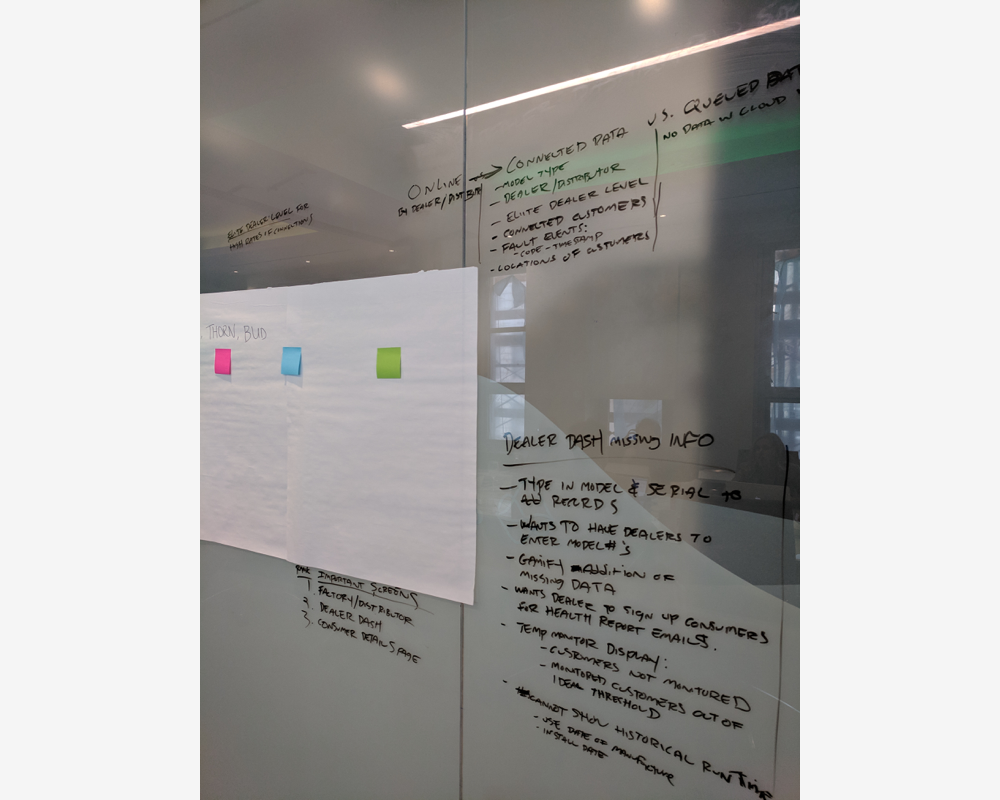 VS. QUEUED BAT
NO DATA IN CLOUD
ONLINE → CONNECTED DATA
IN DEALER/DISTRIBUTE
- MODEL TYPE
- DEALER/DISTRIBUTOR
- ELITE DEALER LEVEL
- CONNECTED CUSTOMERS
- FAULT EVENTS:
- CODE - TIMESTAMP
- LOCATIONS OF CUSTOMERS
ELITE DEALER LEVEL FOR
HIGH RATES OF CONNECTIONS
, THORN, BUD
IMPORTANT SCREENS
1. FACTORY/DISTRIBUTOR
2. DEALER DASH
3. CONSUMER DETAILS PAGE
DEALER DASH MISSING INFO
- TYPE IN MODEL & SERIAL TO
ALL RECORDS
- WANTS TO HAVE DEALERS TO
ENTER MODEL#'S
- GAMIFY ADDITION OF
MISSING DATA
- WANTS DEALER TO SIGN UP CONSUMERS
FOR HEALTH REPORT EMAILS.
- TEMP MONITOR DISPLAY:
- CUSTOMERS NOT MONITORED
- MONITORED CUSTOMERS OUT OF
IDEAL THRESHOLD
- CANNOT SHOW HISTORICAL RUNTIME
- USE DATE OF MANUFACTURE
- INSTALL DATE